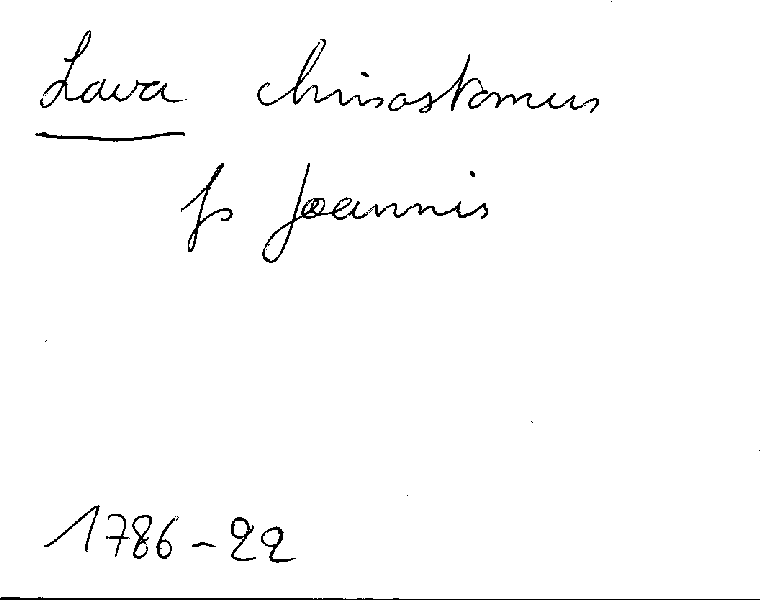 Lava chrisostomus
fs Joannis
1786-22